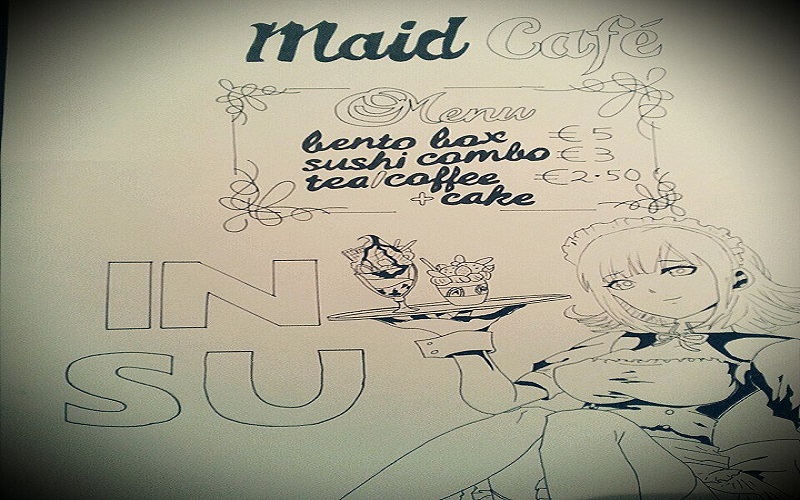 Maid Café
Menu
bento box €5
sushi combo €3
tea/coffee €2.50
+ cake
IN
SU